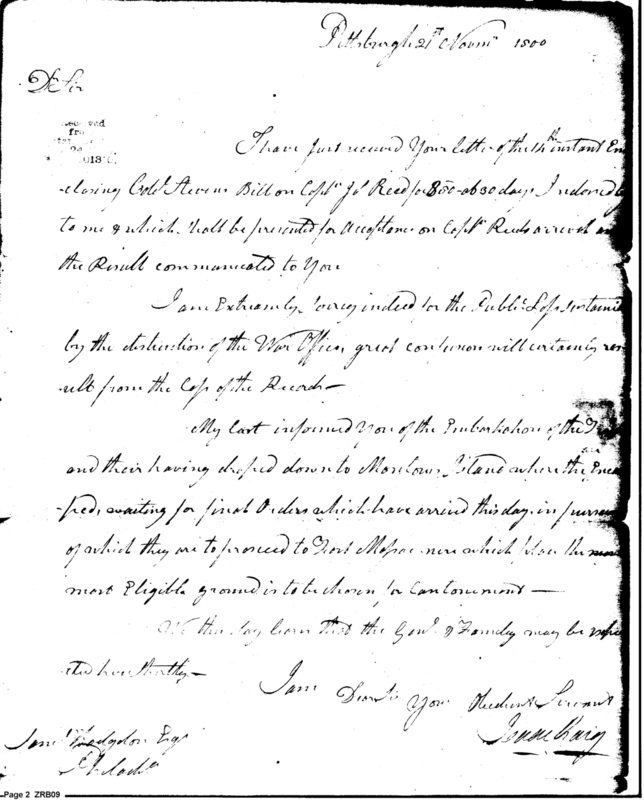 Pittsburgh 21st Novm 1800
Dr Sir
I have just received Your letter of the 14th instant En
closing Colo Stevens Bill on Captn Jno Reed for $50 at 30 days Indorsed
to me & which shall be presented for Acceptance on Captn Reeds arrival an
the Result communicated to You
I am Extreamly sorry indeed for the Public Loss sustain
by the destruction of the War Office, great confusion will certainly res
ult from the Loss of the Records—
My last informed You of the Embarkation of the
and their having droped down to Island where the are Enca
ped, waiting for final Orders which have arrived this day, in
of which they are to proceed to Fort Massac near which place the
most Eligible ground is to be chosen for Cantonement—
We this day learn that the Genl & Family may be expe
cted here shortly—
I am Dear Sir Your Obedient Servant
Isaac Craig
Saml Hodgdon Esqr
Philada
Page 2 ZRB09